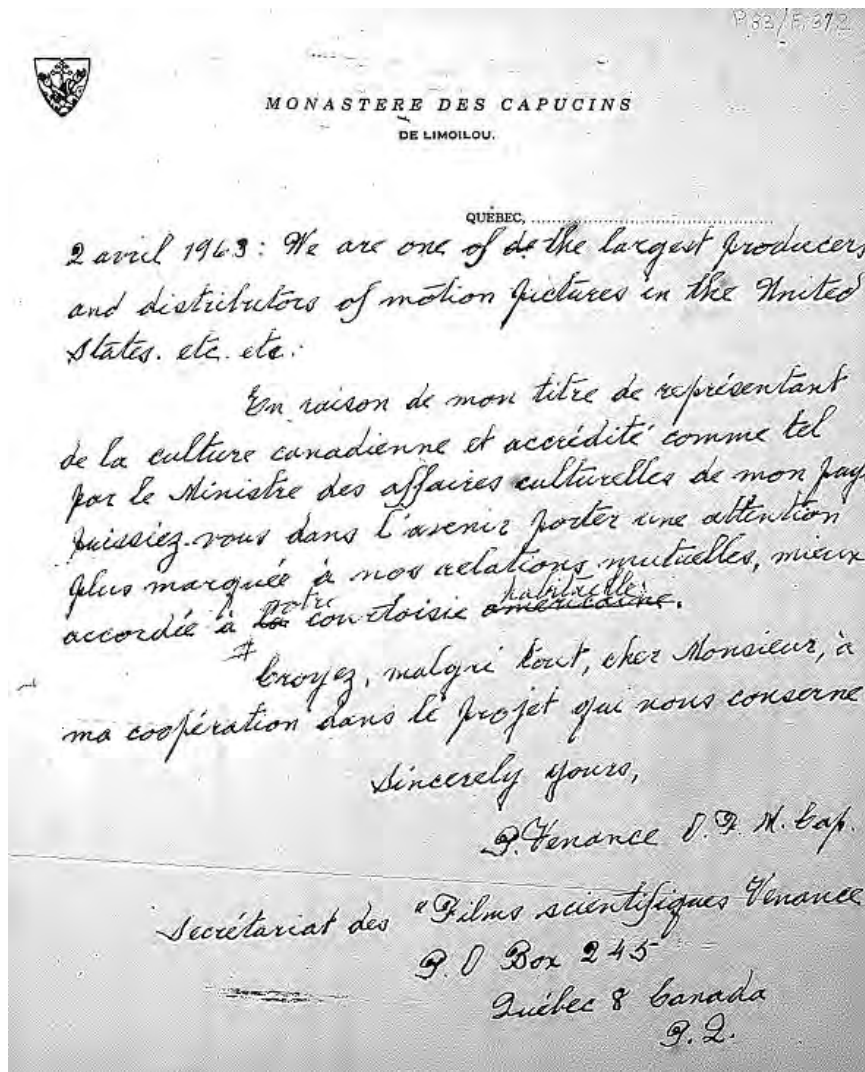 P83/F,372
MONASTERE DES CAPUCINS
DE LIMOILOU.
QUÉBEC, ..........................................
2 avril 1963: We are one of de the largest producers
and distributors of motion pictures in the United
States. etc. etc.
En raison de mon titre de représentant
de la culture canadienne et accrédité comme tel
par le Ministre des affaires culturelles de mon pays
puissiez-vous dans l'avenir porter une attention
plus marquée à nos relations mutuelles, mieux
accordée à la votre courtoisie américaine habituelle.
# Croyez, malgré tout, cher Monsieur, à
ma coopération dans le projet qui nous conserne
Sincerely yours,
P. Venance O.F.M. Cap.
Secrétariat des "Films scientifiques Venance
P.O Box 245
Québec 8 Canada
P.Q.